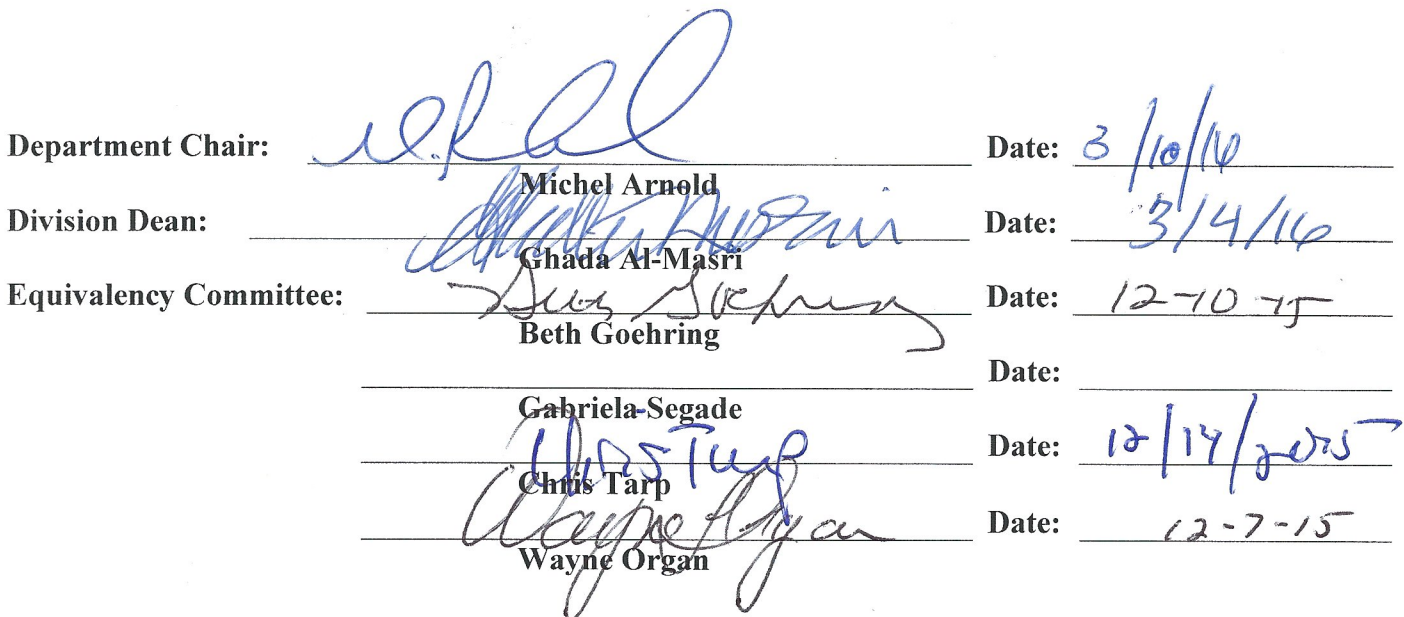 Department Chair: Date: 3/10/16
Michel Arnold
Division Dean: Date: 3/4/16
Ghada Al-Masri
Equivalency Committee: Beth Goehring Date: 12-10-15
Beth Goehring
Date:
Gabriela Segade
Chris Tarp Date: 12/14/2015
Chris Tarp
Wayne Organ Date: 12-7-15
Wayne Organ